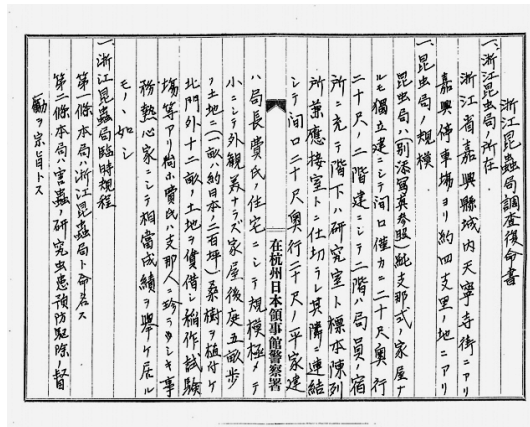 浙江昆蟲局調查復命書
一、浙江昆虫局ノ所在
浙江省嘉興縣城內天寧寺街ニアリ
嘉興停車場ヨリ約四支里ノ地ニアリ
一、昆虫局ノ規模
昆虫局ハ(別添寫眞參照)純支那式ノ家屋ナ
ルモ獨立建ニシテ間口僅カニ二十尺奧行
二十尺ノ二階建ニシテ二階ハ局員ノ宿
所ニ充テ階下ハ研究室ト標本陳列
所兼應接室トニ仕切ラレ其隣ニ連結
シテ間口二十尺奧行二十尺ノ平家建
在杭州日本領事館警察署
ハ局長費氏ノ住宅ニシテ規模極メテ
小ニシテ外觀美ナラズ家屋後庭五畝步
ノ土地ニ(一畝ハ約日本ノ二百坪)桑樹ヲ植付ケ
北門外十二畝ノ土地ヲ賃借シ稻作試驗
場等アリ尚ホ費氏ハ支那人ニ珍ラシキ事
務熱心家ニシテ相當成績ヲ擧ケ居ル
モノヽ如シ
一、浙江昆蟲局臨時規程
第一條本局ハ浙江昆蟲局ト命名ス
第二條本局ハ害蟲ノ研究虫患預防駆除ノ督
勵ヲ宗旨トス